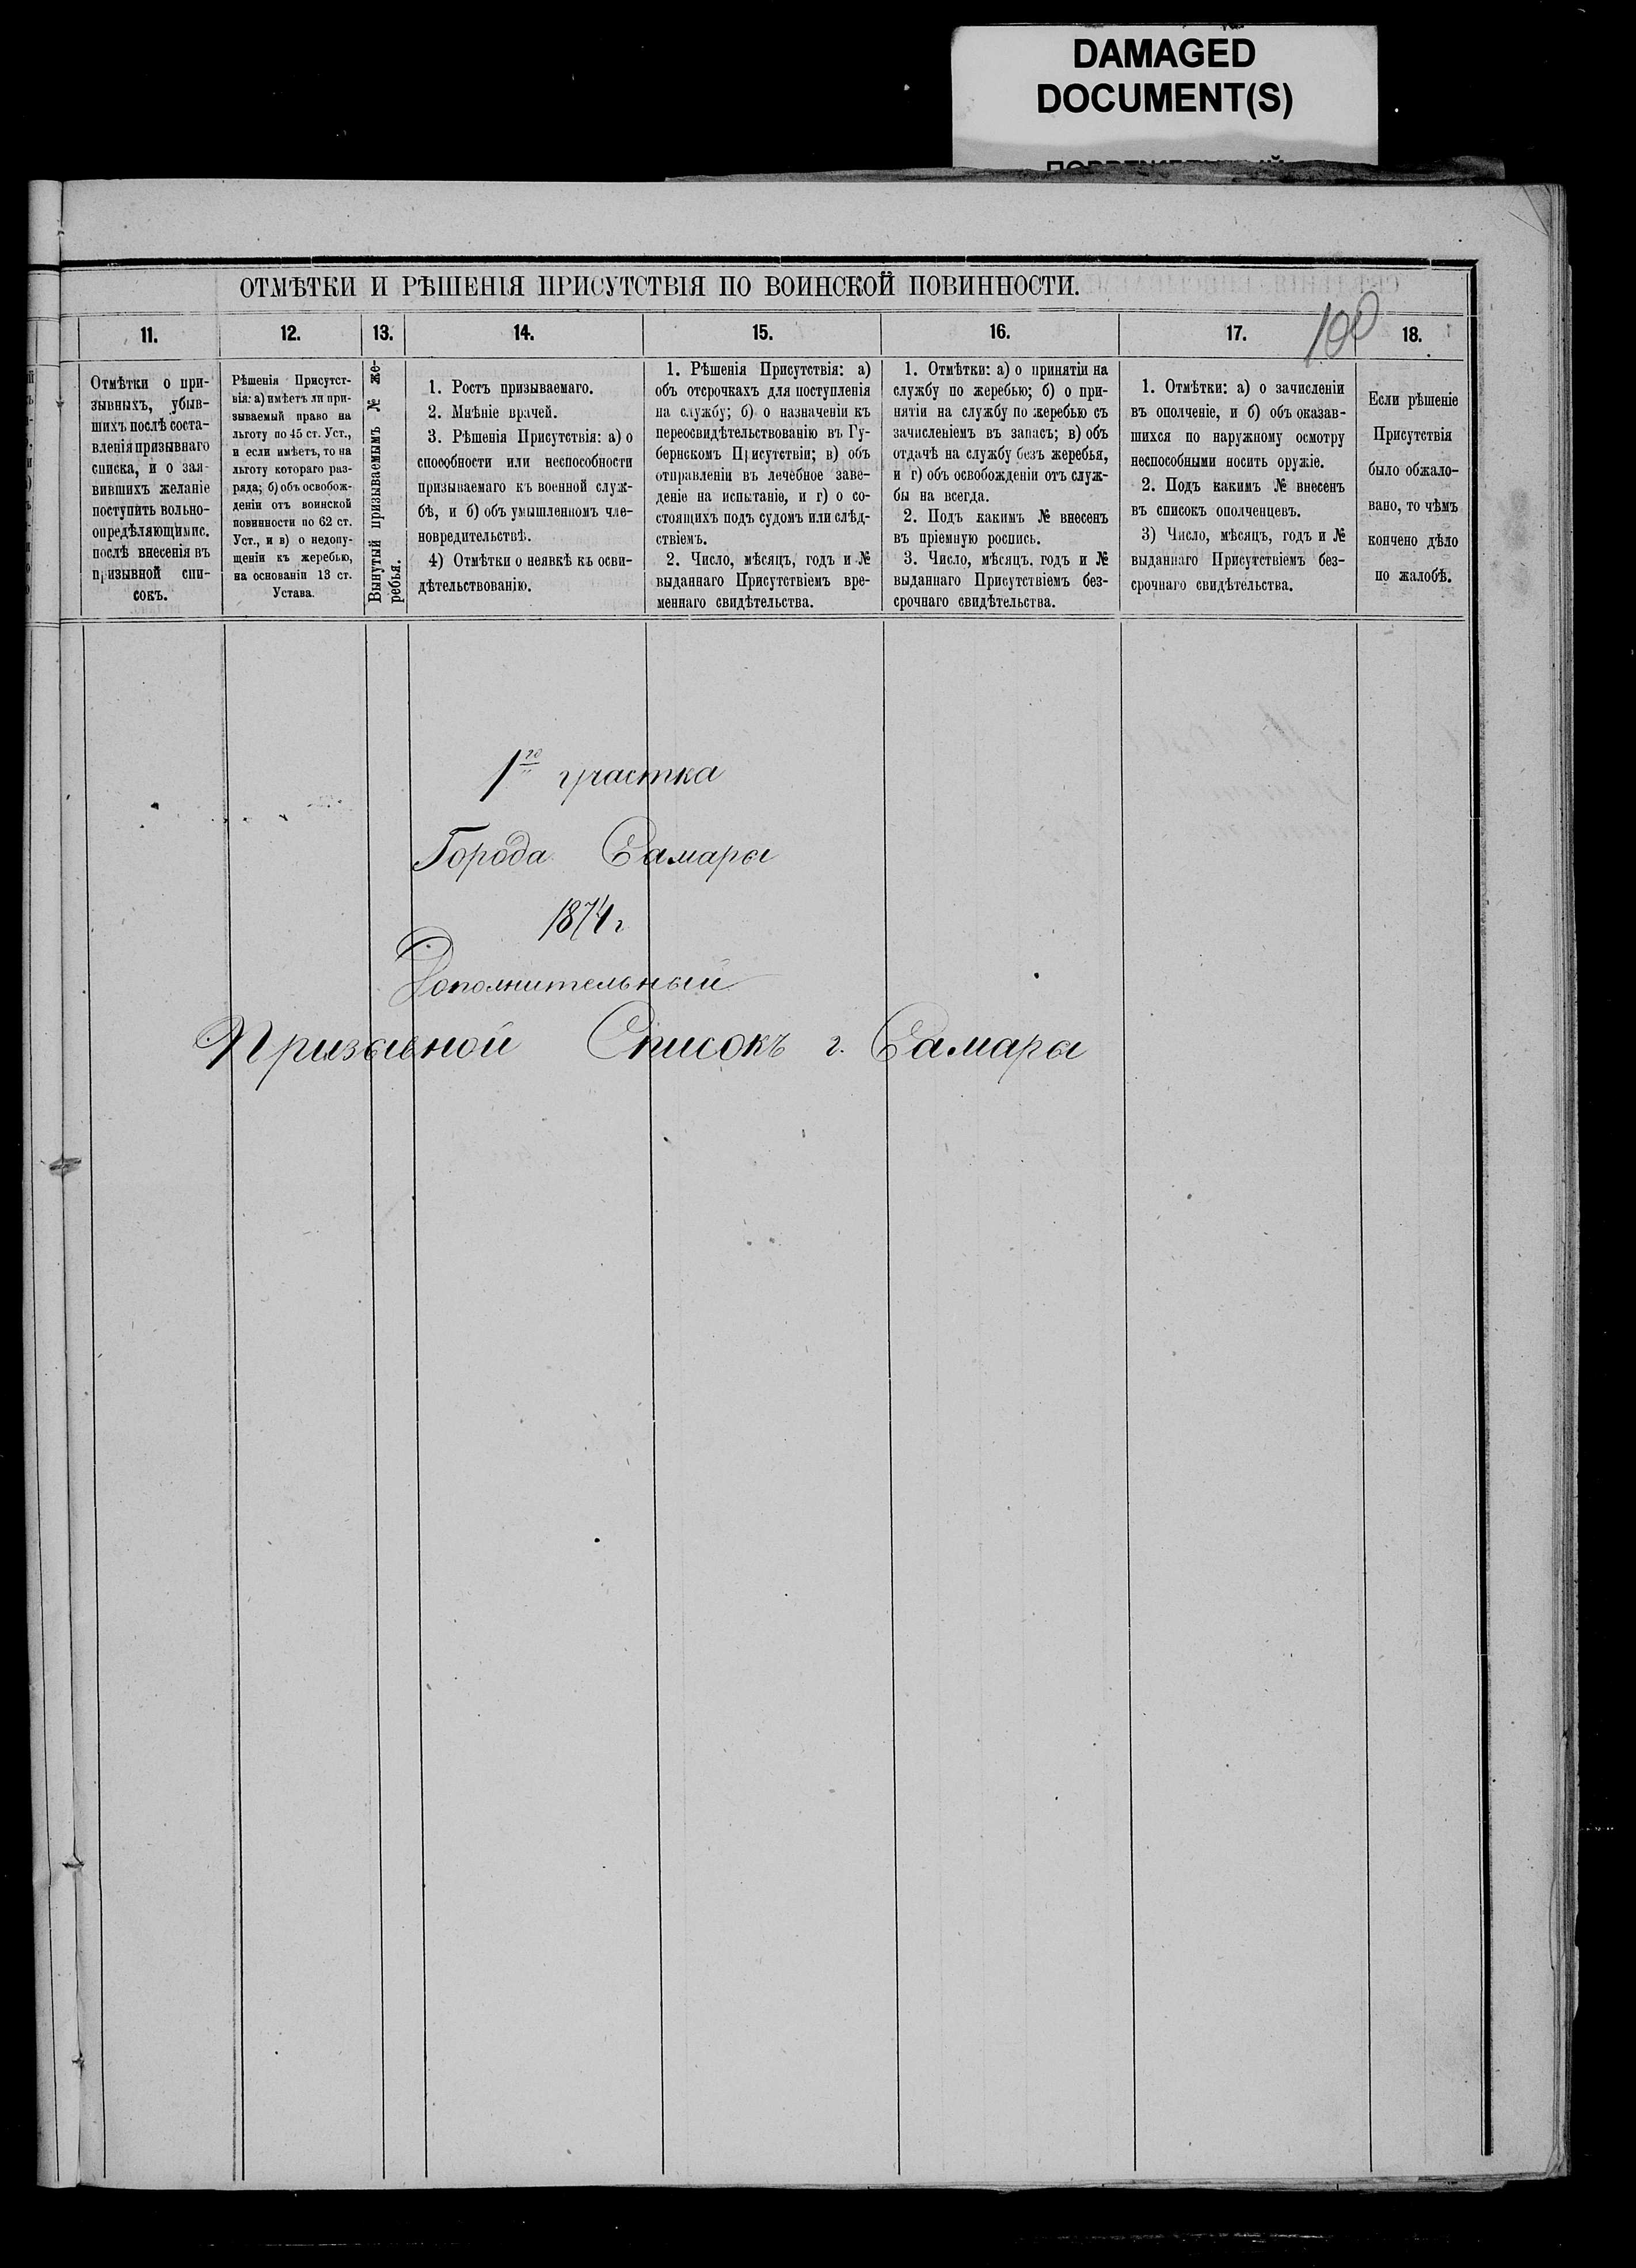 DAMAGED
DOCUMENT(S)
ОТМѢТКИ И РѢШЕНІЯ ПРИСУТСТВІЯ ПО ВОИНСКОЙ ПОВИННОСТИ.
100
11.
12.
13.
14.
15.
16.
17.
18.
Отмѣтки о при-
зывныхъ, убыв-
шихъ послѣ соста-
вленія призывнаго
списка, и о зая-
вившихъ желаніе
поступить вольно-
опредѣляющимис.
послѣ внесенія въ
призывной спи-
сокъ.
Рѣшенія Присутст-
вія: а) имѣетъ ли при-
зываемый право на
льготу по 45 ст. Уст.,
и если имѣетъ, то на
льготу котораго раз-
ряда; б) объ освобож-
деніи отъ воинской
повинности по 62 ст.
Уст., и в) о недопу-
щеніи къ жеребью,
на основаніи 13 ст.
Устава.
Вынутый призываемымъ № же-
ребья.
1. Ростъ призываемаго.
2. Мнѣніе врачей.
3. Рѣшенія Присутствія: а) о
способности или неспособности
призываемаго къ военной служ-
бѣ, и б) объ умышленномъ чле-
новредительствѣ.
4) Отмѣтки о неявкѣ къ осви-
дѣтельствованію.
1. Рѣшенія Присутствія: а)
объ отсрочкахъ для поступленія
на службу; б) о назначеніи къ
переосвидѣтельствованію въ Гу-
бернскомъ Присутствіи; в) объ
отправленіи въ лечебное заве-
деніе на испытаніе, и г) о со-
стоящихъ подъ судомъ или слѣд-
ствіемъ.
2. Число, мѣсяцъ, годъ и №
выданнаго Присутствіемъ вре-
меннаго свидѣтельства.
1. Отмѣтки: а) о принятіи на
службу по жеребью; б) о при-
нятіи на службу по жеребью съ
зачисленіемъ въ запасъ; в) объ
отдачѣ на службу безъ жеребья,
и г) объ освобожденіи отъ служ-
бы на всегда.
2. Подъ какимъ № внесенъ
въ пріемную роспись.
3. Число, мѣсяцъ, годъ и №
выданнаго Присутствіемъ без-
срочнаго свидѣтельства.
1. Отмѣтки: а) о зачисленіи
въ ополченіе, и б) объ оказав-
шихся по наружному осмотру
неспособными носить оружіе.
2. Подъ какимъ № внесенъ
въ списокъ ополченцевъ.
3) Число, мѣсяцъ, годъ и №
выданнаго Присутствіемъ без-
срочнаго свидѣтельства.
Если рѣшеніе
Присутствія
было обжало-
вано, то чѣмъ
кончено дѣло
по жалобѣ.
1го участка
Города Самары
1874 г
Дополнительный
Призывной Списокъ г. Самары